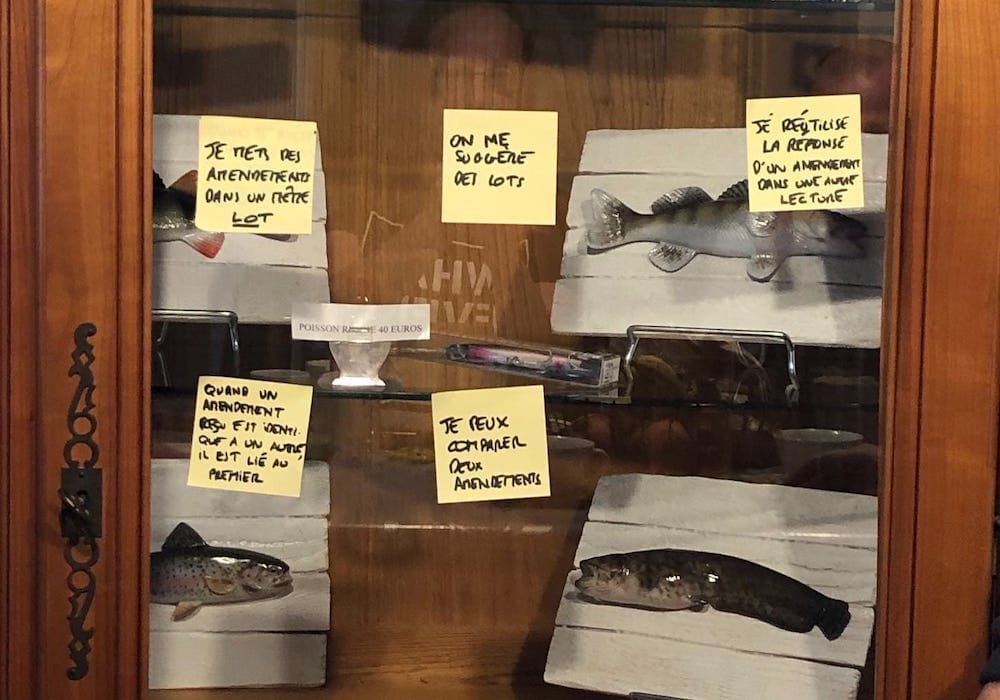 JE METS DES
AMENDEMENTS
DANS UN MÊME
LOT
ON ME
SUGGÈRE
DES LOTS
JE RÉUTILISE
LA RÉPONSE
D'UN AMENDEMENT
DANS UNE AUTRE
LECTURE
POISSON 40 EUROS
QUAND UN
AMENDEMENT
REÇU EST IDENTI-
QUE A UN AUTRE
IL EST LIÉ AU
PREMIER
JE PEUX
COMPARER
DEUX
AMENDEMENTS